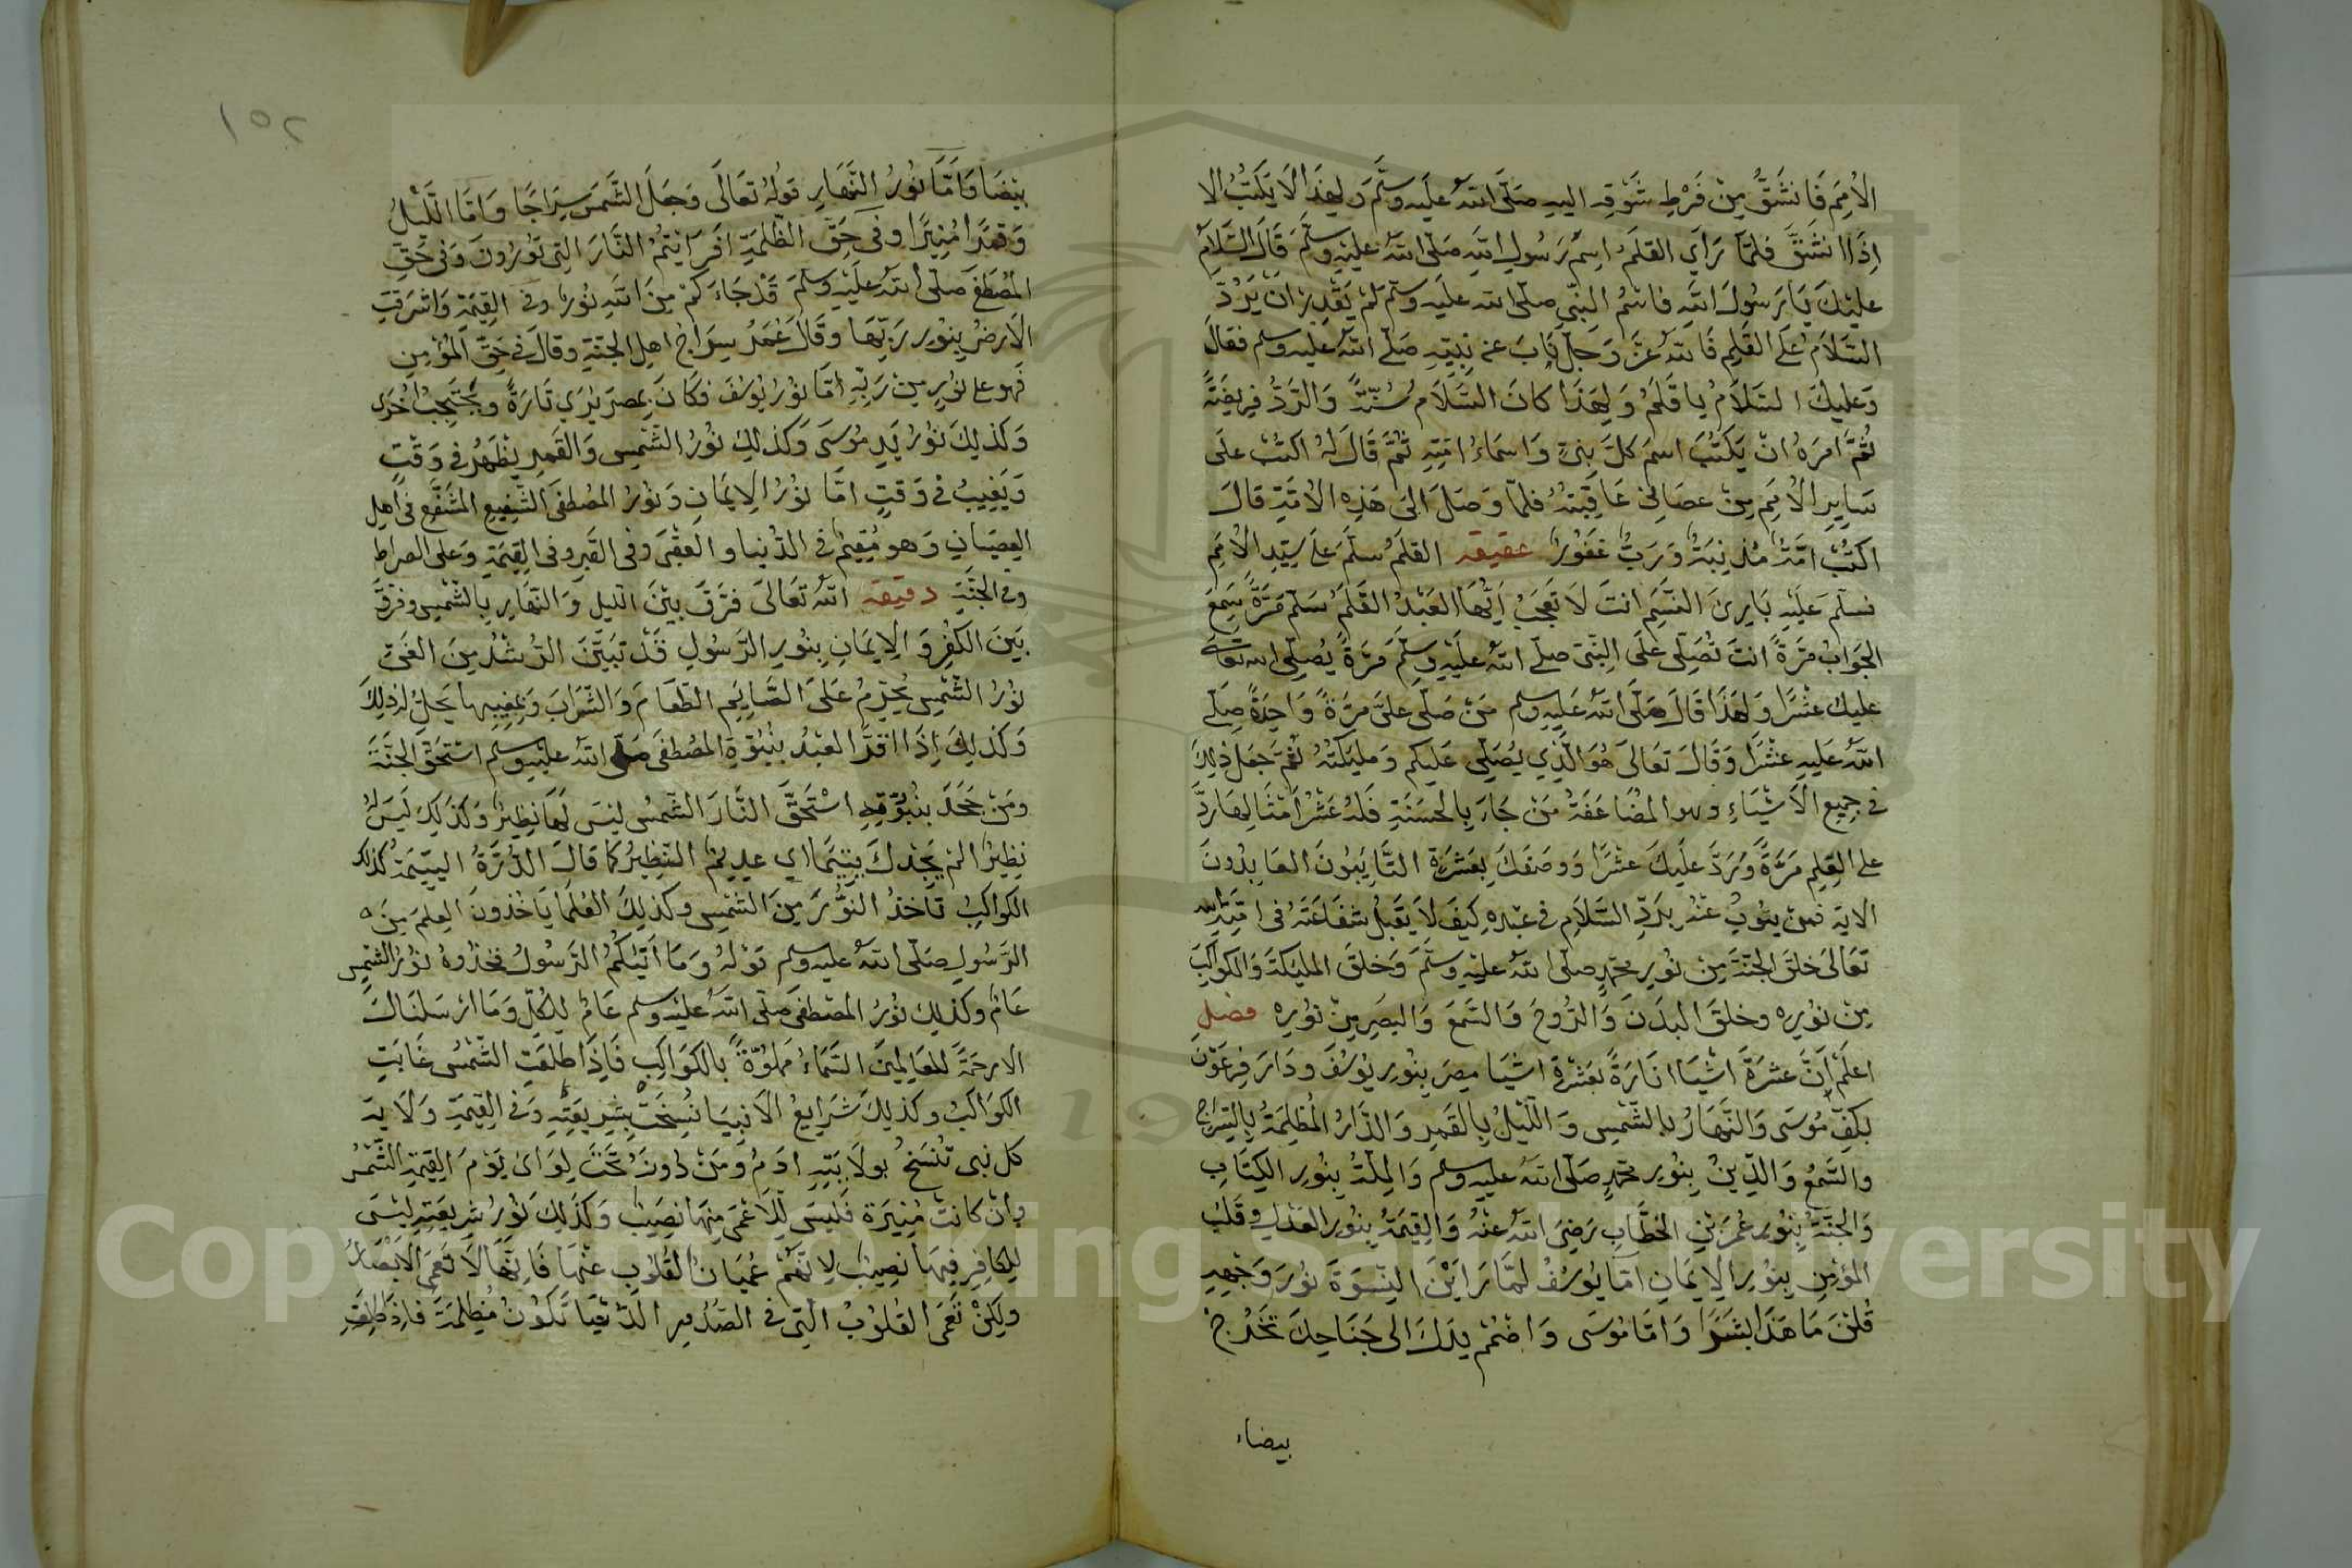 الامم فانشق من فرط شوقه اليه صلى الله عليه وسلم ولهذا لا يكتب الا
اذا انشق فلما راى القلم اسم رسول الله صلى الله عليه وسلم قال السلام
عليك يا رسول الله فاسم النبي صلى الله عليه وسلم لم يقدر ان يرد
السلام على القلم فالله عز وجل ناب عن نبيه صلى الله عليه وسلم فقال
وعليك السلام يا قلم ولهذا كان السلام سنة والرد فريضة
ثم امره ان يكتب اسم كل نبي واسماء امته ثم قال له اكتب على
ساير الامم من عصاني عاقبته فلما وصل الى هذه الامة قال
اكتب امة مذنبة ورب غفور عقيقه القلم سلم على سيد الامم
فسلم عليه بارئ النسم انت لا تعجب ايها العبد القلم سلم مرة سمع
الجواب مرة انت تصلى على النبي صلى الله عليه وسلم مرة يصلى الله تعالى
عليك عشرا ولهذا قال صلى الله عليه وسلم من صلى على مرة واحدة صلى
الله عليه عشرا وقال تعالى هو الذي يصلى عليكم ومليكته ثم جعل ذلك
في جميع الاشياء وهو المضاعفة من جاء بالحسنة فله عشر امثالها رد
على القلم مرة ورد عليك عشرا ووصفك بعشرة التايبون العابدون
الاية فمن ينوب عنه برد السلام في عبده كيف لا يقبل شفاعته في امته الله
تعالى خلق الجنة من نور محمد صلى الله عليه وسلم وخلق المليكة والكواكب
من نوره وخلق البدن والروح والسمع والبصر من نوره فصل
اعلم ان عشرة اشيا انارة بعشرة اشيا مصر بنور يوسف ودار فرعون
بكف موسى والنهار بالشمس والليل بالقمر والدار المظلمة بالسراج
والشمع والدين بنور محمد صلى الله عليه وسلم والملة بنور الكتاب
والجنة بنور عمر بن الخطاب رضى الله عنه والقيمة بنور العدل وقلب
المؤمن بنور الايمان اما يوسف لما راين النسوة نور وجهه
قلن ما هذا بشرا واما موسى واضمم يدك الى جناحك تخرج
بيضاء
١٥٢
بيضا واما نور النهار قوله تعالى وجعل الشمس سراجا واما الليل
وقمرا منيرا وفي حق الظلمة افرايتم النار التي تورون وفي حق
المصطفى صلى الله عليه وسلم قد جاءكم من الله نور وفي القيمة واشرقت
الارض بنور ربها وقال عمر سراج اهل الجنة وقال في حق المؤمن
فهو على نور من ربه اما نور يوسف فكان بمصر يرى تارة ويحتجب اخرى
وكذلك نور يد موسى وكذلك نور الشمس والقمر يظهر في وقت
ويغيب في وقت اما نور الايمان ونور المصطفى الشفيع المشفع في اهل
العصيان وهو مقيم في الدنيا والعقبى وفي القبر وفي القيمة وعلى الصراط
وفي الجنة دقيقه الله تعالى فرق بين الليل والنهار بالشمس وفرق
بين الكفر والايمان بنور الرسول قد تبين الرشد من الغي
نور الشمس يحرم على الصايم الطعام والشراب وبمغيبها يحل له ذلك
وكذلك اذا اقر العبد بنبوة المصطفى صلى الله عليه وسلم استحق الجنة
ومن جحد بنبوته استحق النار الشمس ليس لها نظير وكذلك ليس له
نظير الم يجدك يتيما اي عديم النظير كما قال الدرة اليتيمة كذلك
الكواكب تاخذ النور من الشمس وكذلك العلما ياخذون العلم من
الرسول صلى الله عليه وسلم قوله وما اتيكم الرسول فخذوه نور الشمس
عام وكذلك نور المصطفى صلى الله عليه وسلم عام للكل وما ارسلناك
الا رحمة للعالمين السماء مملوة بالكواكب فاذا طلعت الشمس غابت
الكواكب وكذلك شرايع الانبيا نسخت بشريعته وفي القيمة ولاية
كل نبى تنسخ بولايته ادم ومن دونه تحت لوائ يوم القيمة الشمس
وان كانت منيرة فليس للاعمى منها نصيب وكذلك نور شريعته ليس
للكافر فيها نصيب لانهم عميان القلوب عنها فانها لا تعمى الابصار
ولكن تعمى القلوب التى في الصدور الدنيا تكون مظلمة فاذا طلعت
Copyright © King Saud University